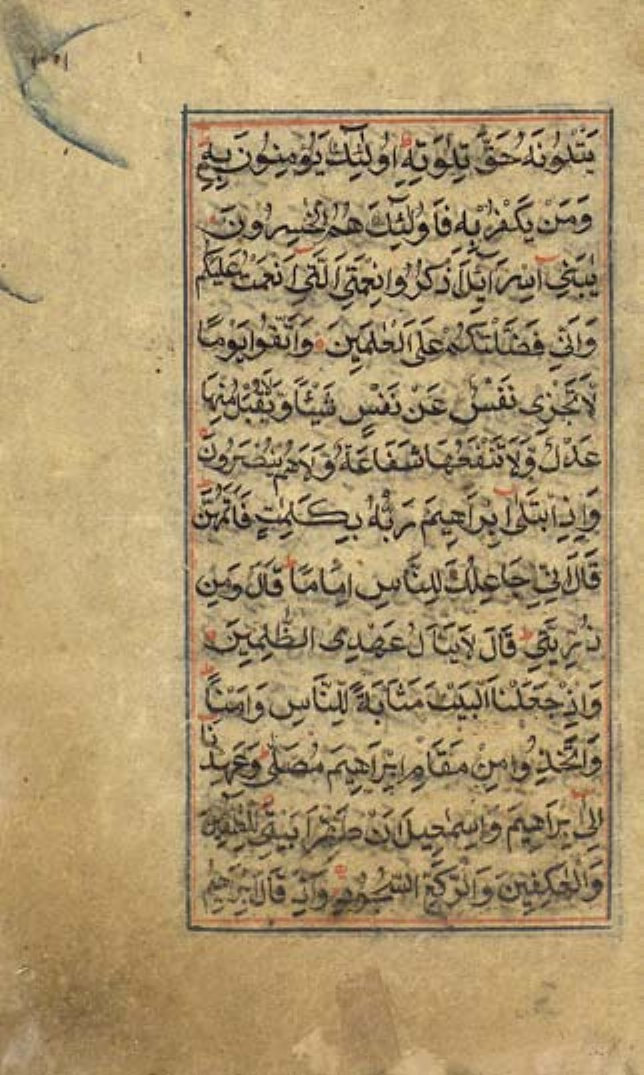 يَتْلُوْنَهٗ حَقَّ تِلَاوَتِهٖ ؕ اُولٰٓئِكَ يُؤْمِنُوْنَ بِهٖ ؕ
وَمَنْ يَّكْفُرْ بِهٖ فَاُولٰٓئِكَ هُمُ الْخٰسِرُوْنَ
يٰبَنِيْٓ اِسْرَآئِيْلَ اذْكُرُوْا نِعْمَتِيَ الَّتِيْٓ اَنْعَمْتُ عَلَيْكُمْ
وَاَنِّيْ فَضَّلْتُكُمْ عَلَى الْعٰلَمِيْنَ وَاتَّقُوْا يَوْمًا
لَّا تَجْزِيْ نَفْسٌ عَنْ نَّفْسٍ شَيْئًا وَّلَا يُقْبَلُ مِنْهَا
عَدْلٌ وَّلَا تَنْفَعُهَا شَفَاعَةٌ وَّلَا هُمْ يُنْصَرُوْنَ
وَاِذِ ابْتَلٰٓى اِبْرَاهِيْمَ رَبُّهٗ بِكَلِمٰتٍ فَاَتَمَّهُنَّ ؕ
قَالَ اِنِّيْ جَاعِلُكَ لِلنَّاسِ اِمَامًا ؕ قَالَ وَمِنْ
ذُرِّيَّتِيْ ؕ قَالَ لَا يَنَالُ عَهْدِي الظّٰلِمِيْنَ
وَاِذْ جَعَلْنَا الْبَيْتَ مَثَابَةً لِّلنَّاسِ وَاَمْنًا ؕ
وَاتَّخِذُوْا مِنْ مَّقَامِ اِبْرَاهِيْمَ مُصَلًّى ؕ وَعَهِدْنَا
اِلٰٓى اِبْرَاهِيْمَ وَاِسْمٰعِيْلَ اَنْ طَهِّرَا بَيْتِيَ لِلطَّآئِفِيْنَ
وَالْعٰكِفِيْنَ وَالرُّكَّعِ السُّجُوْدِ وَاِذْ قَالَ اِبْرٰهِيْمُ